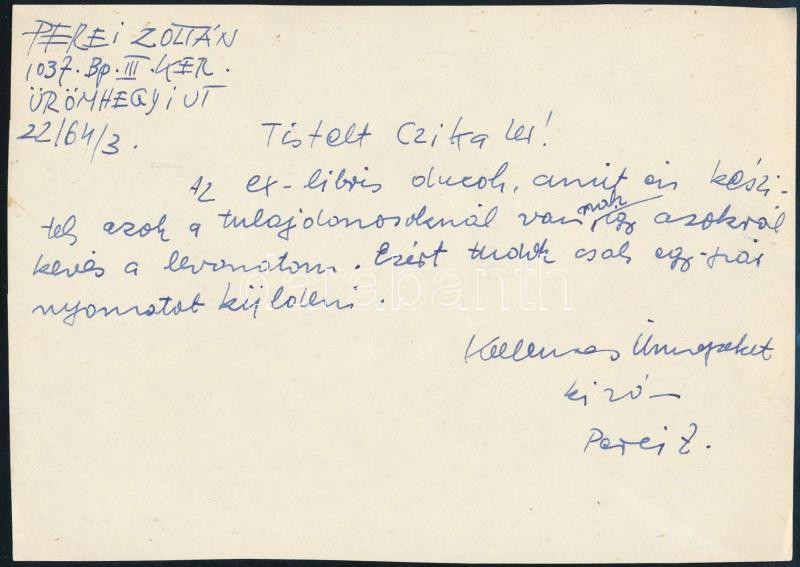 PEREI ZOLTÁN
1037. Bp. III. KER.
ÜRÖMHEGYI UT
22/64/3.
Tistelt Czika Ur!
Az ex-libris ducok, amit én készi-
tek azok a tulajdonosoknál van nak így azokról
kevés a levonatom. Ezért tudok csak egy-pár
nyomatot küldeni.
Kellemes Ünnepeket
kivó
Perei Z.
darabanth